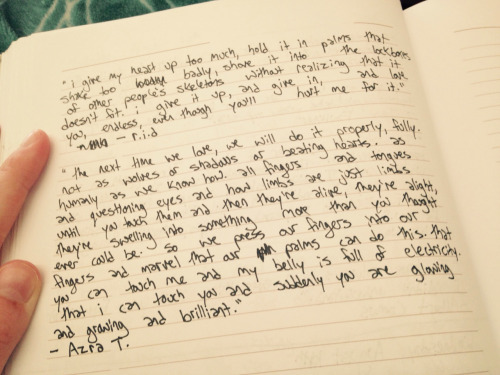 "i give my heart up too much, hold it in palms that
shake too badly, shove it into the lockboxes
of other people's skeletons without realizing that it
doesn't fit. i give it up, and give in, and love
you, endless, even though you'll hurt me for it."
- r.i.d
"the next time we love, we will do it properly, fully.
not as wolves or shadows or beating hearts. as
humanly as we know how. all fingers and tongues
and questioning eyes and how limbs are just limbs
until you touch them and then they're alive, they're alight,
they're swelling into something more than you thought
ever could be. so we press our fingers into our
fingers and marvel that our palms can do this. that
you can touch me and my belly is full of electricity.
that i can touch you and suddenly you are glowing
and growing and brilliant."
- Azra T.